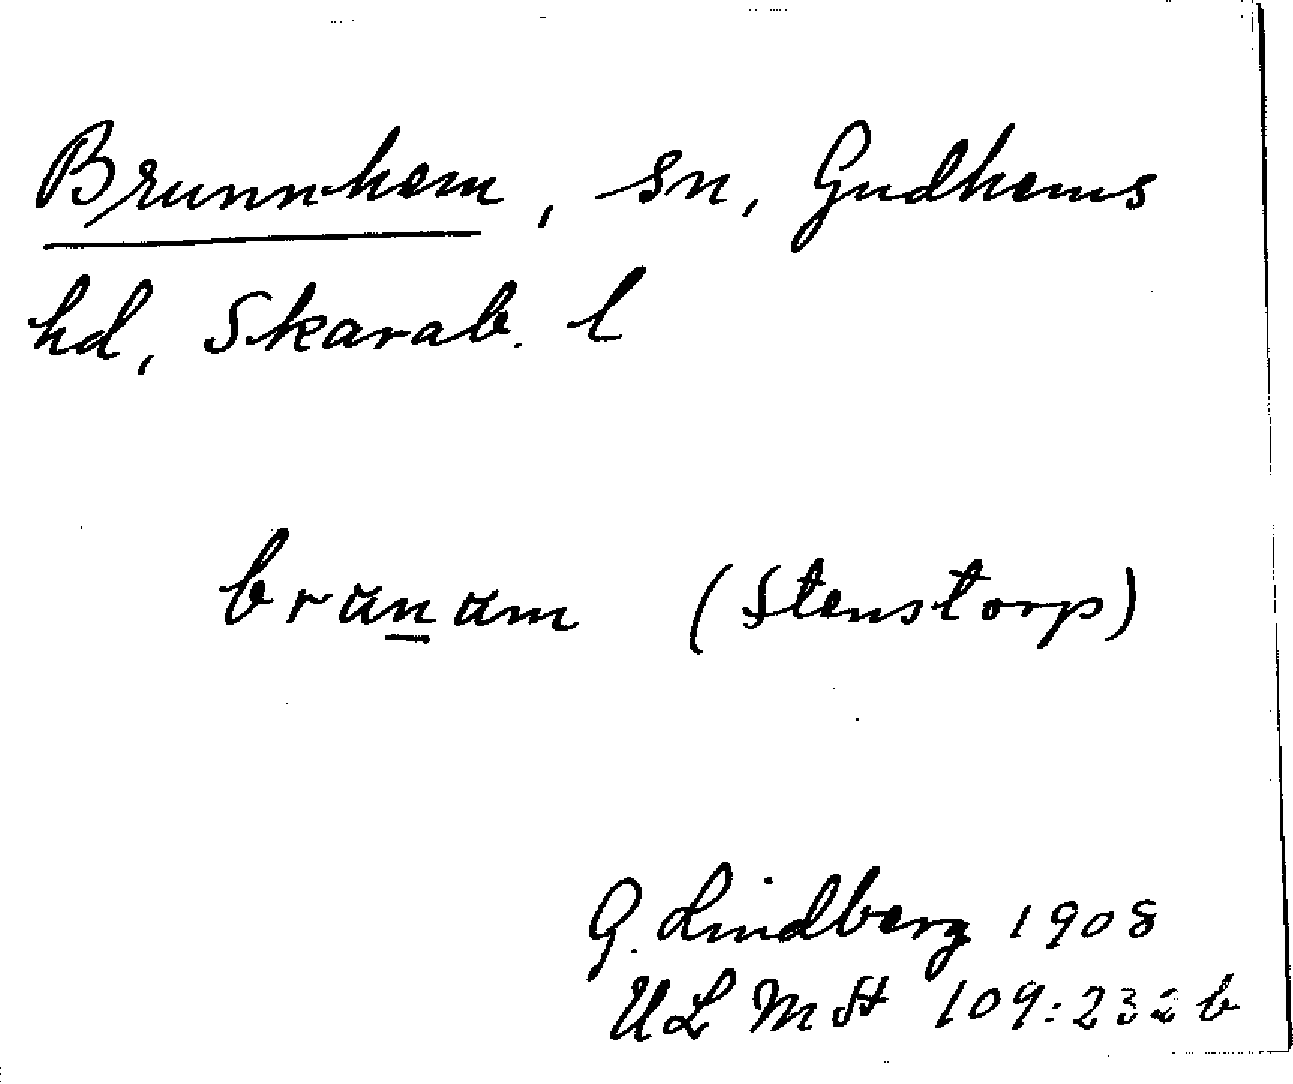 Brunnhem, sn, Gudhems
hd, Skarab. l
bränäm (Stenstorp)
G. Lindberg 1908
ULMA 109:232 b